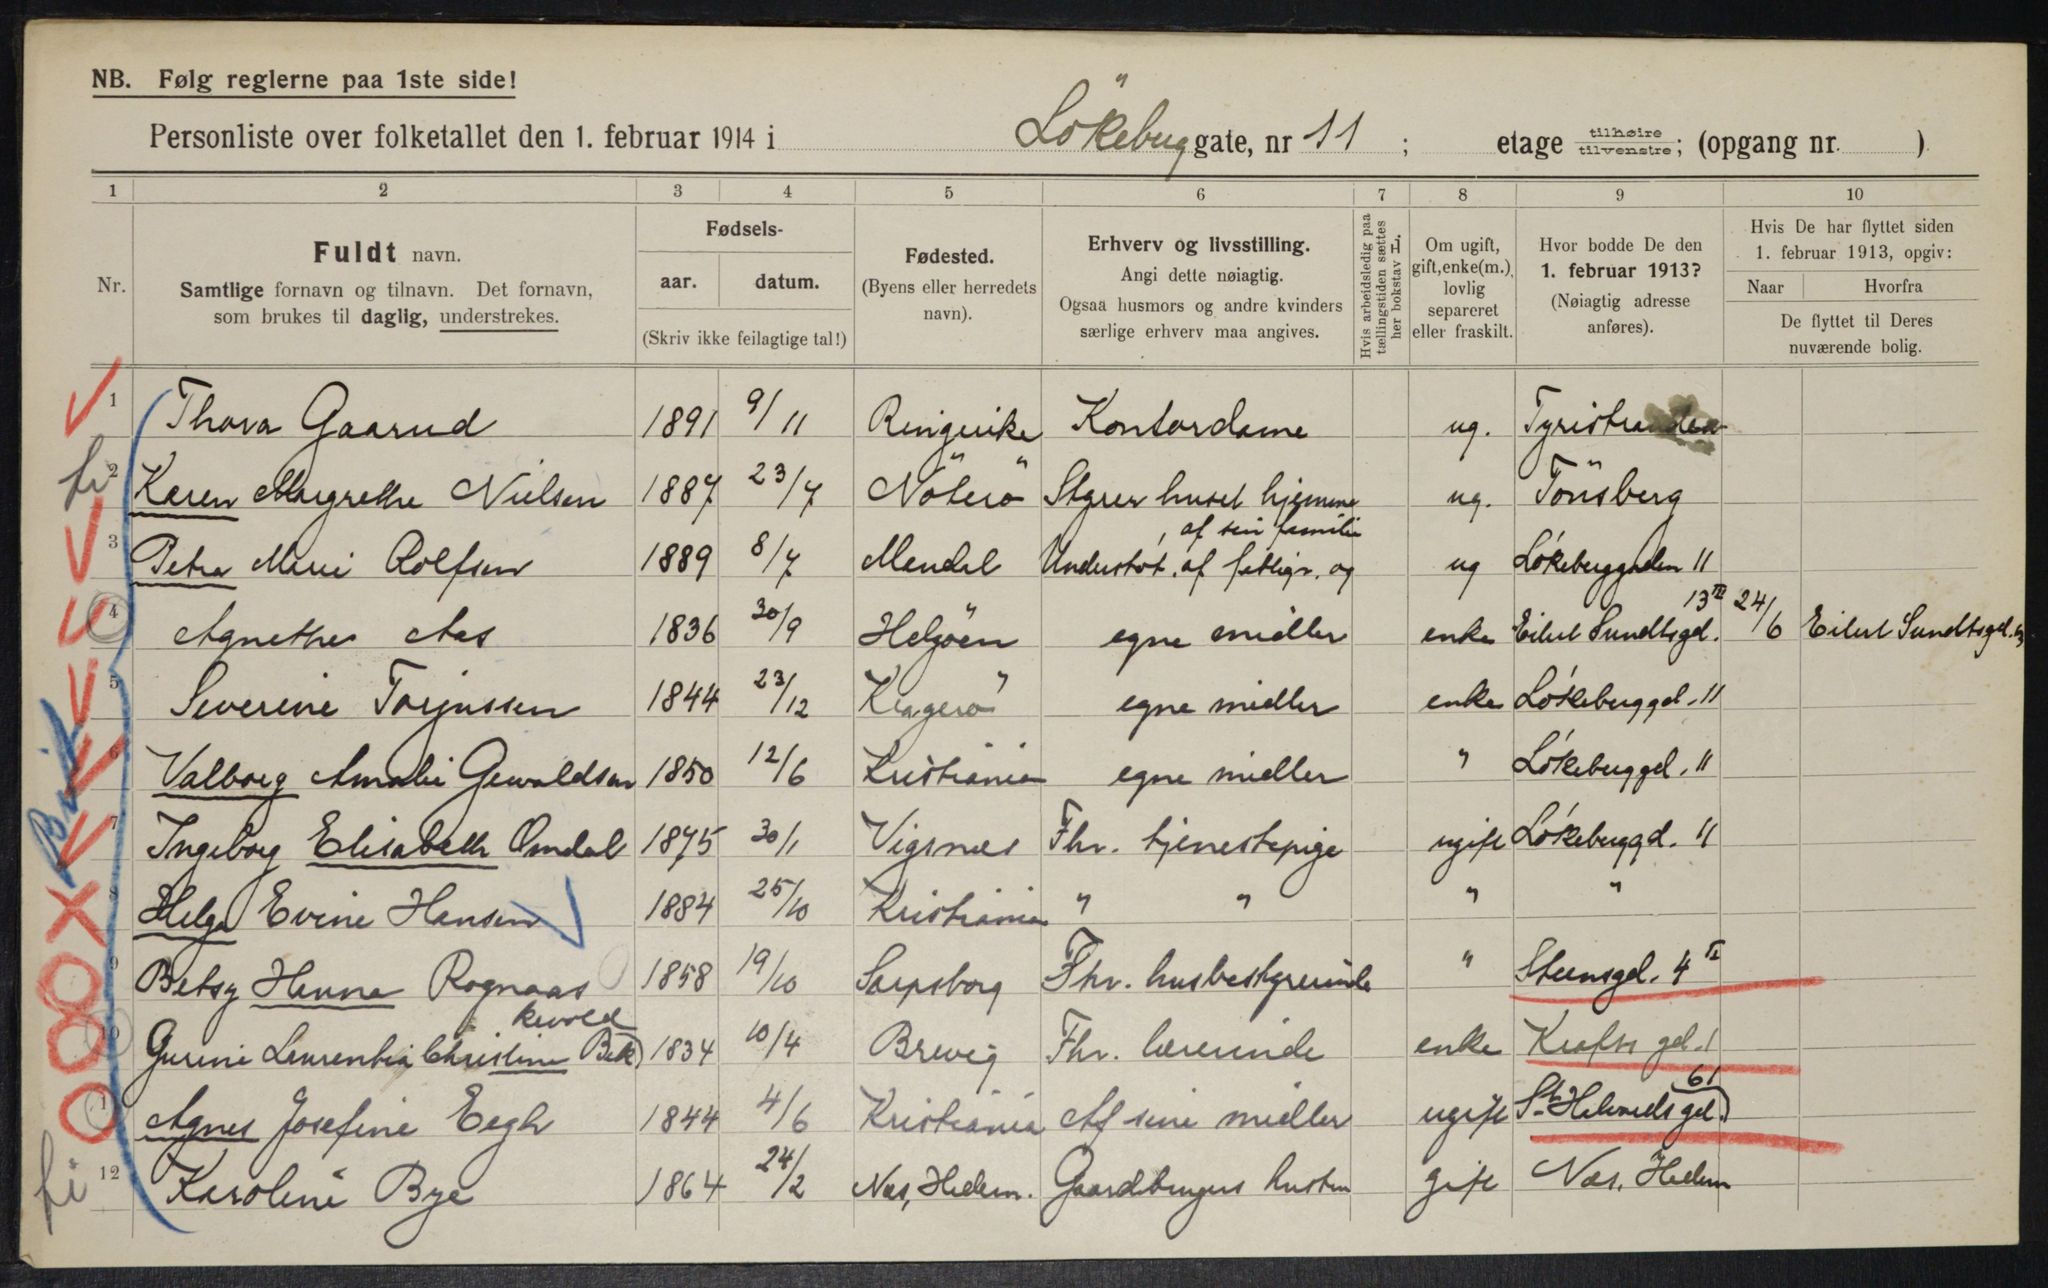 NB. Følg reglerne paa 1ste side!
Personliste over folketallet den 1. februar 1914 i Lökeberggate, nr 11; etage tilhøire tilvenstre; (opgang nr. )
1 2 3 4 5 6 7 8 9 10
Nr.
Fuldt navn.
Samtlige fornavn og tilnavn. Det fornavn,
som brukes til daglig, understrekes.
Fødsels-
aar. datum.
(Skriv ikke feilagtige tal!)
Fødested.
(Byens eller herredets
navn).
Erhverv og livsstilling.
Angi dette nøiagtig.
Ogsaa husmors og andre kvinders
særlige erhverv maa angives.
Hvis arbeidsledig paa
tællingstiden sættes
her bokstav L.
Om ugift,
gift, enke(m.),
lovlig
separeret
eller fraskilt.
Hvor bodde De den
1. februar 1913?
(Nøiagtig adresse
anføres).
Hvis De har flyttet siden
1. februar 1913, opgiv:
Naar Hvorfra
De flyttet til Deres
nuværende bolig.
1 Thora Gaarud 1891 9/11 Ringerike Kontordame ug. Tyristranden
2 Karen Margrethe Nielsen 1887 23/7 Nöterö Styrer huset hjemme ug. Tönsberg
3 Petra Marie Rolfsen 1889 8/7 Mandal Understöt. af fattigv. og af sin familie ug Lökeberggaden 11
4 Agnethe Aas 1836 30/9 Helgöen egne midler enke Eilert Sundtsgd. 13 III 24/6 Eilert Sundtsgd. 13
5 Severine Torjussen 1844 23/12 Kragerö egne midler enke Lökeberggd. 11
6 Valborg Amalie Gewaldsen 1850 12/6 Kristiania egne midler " Lökeberggd. 11
7 Ingeborg Elisabeth Omdal 1875 30/1 Vigsnes Fhv. tjenestepige ugift Lökeberggd. 11
8 Helga Evine Hansen 1884 25/10 Kristiania " " " "
9 Betsy Hanna Rognaas 1858 19/10 Sarpsborg Fhv. husbestyrerinde " Steensgd. 4 II
10 Gurine Laurentia Christine Bekkevold 1834 10/4 Brevig Fhv. lærerinde enke Krafts gd. 1
11 Agnes Josefine Eegh 1844 4/6 Kristiania Af sine midler ugift St. Halvardsgd. 61
12 Karoline Bye 1864 24/2 Nes, Hedem. Gaardbrugers hustru gift Nes. Hedem